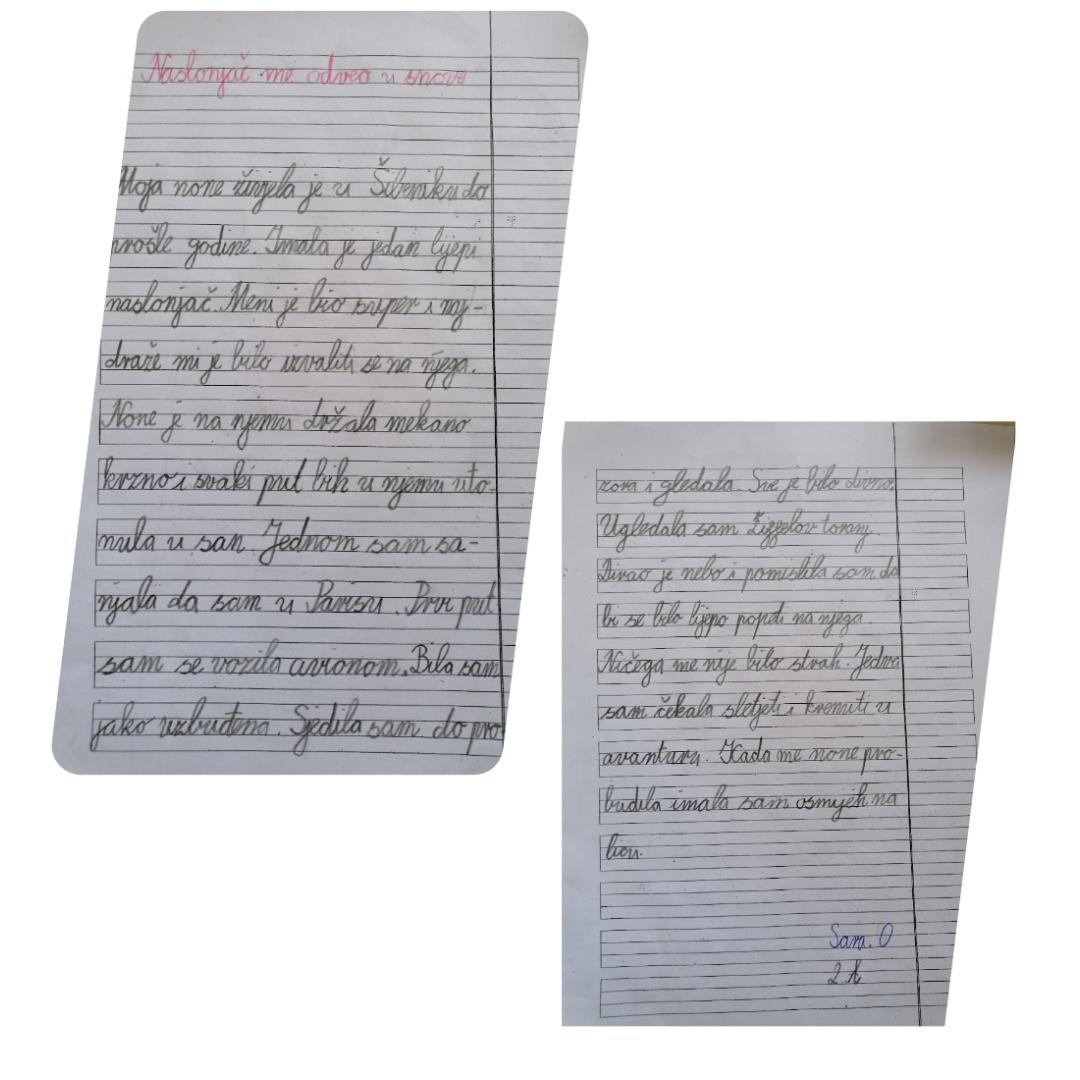 Naslonjač me odveo u snove
Moja none živjela je u Šibeniku do
prošle godine. Imala je jedan lijepi
naslonjač. Meni je bio super i naj-
draže mi je bilo izvaliti se na njega.
None je na njemu držala mekano
krzno i svaki put bih u njemu uto-
nula u san. Jednom sam sa-
njala da sam u Parisu. Prvi put
sam se vozila avionom. Bila sam
jako uzbuđena. Sjedila sam do pro-
zora i gledala. Sve je bilo divno.
Ugledala sam Žizgelov toranj.
Dirao je nebo i pomislila sam da
bi se bilo lijepo popeti na njega.
Ničega me nije bilo strah. Jedva
sam čekala sletjeti i krenuti u
avanturu. Kada me none pro-
budila imala sam osmijeh na
licu.
Sara. O
2. A